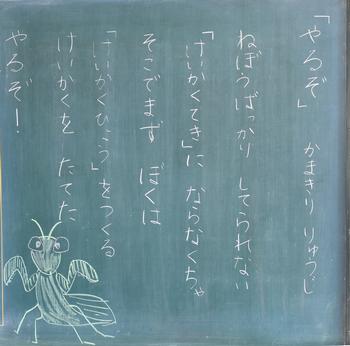 「やるぞ」　かまきり りゅうじ
ねぼうばっかり してられない
「けいかくてき」に ならなくちゃ
そこでまず ぼくは
「けいかくひょう」をつくる
けいかくを たてた
やるぞ！